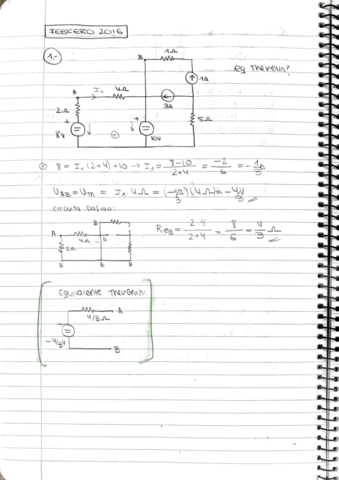 FEBRERO 2016
1.-
B
1Ω
1A
eq Thevenin?
A
I₁
4Ω
3A
2Ω
5Ω
+
8V
+
10V
8 = I₁ (2+4) + 10 → I₁ = 8-10/2+4 = -2/6 = -1/3 A
UAB = UTh = I₁ 4Ω = (-1/3)(4Ω) = -4/3 V
circuito pasivo:
B
A
4Ω
2Ω
B
B
B
Req = 2·4/2+4 = 8/6 = 4/3 Ω
Equivalente Thevenin:
A
4/3 Ω
+
-4/3 V
B